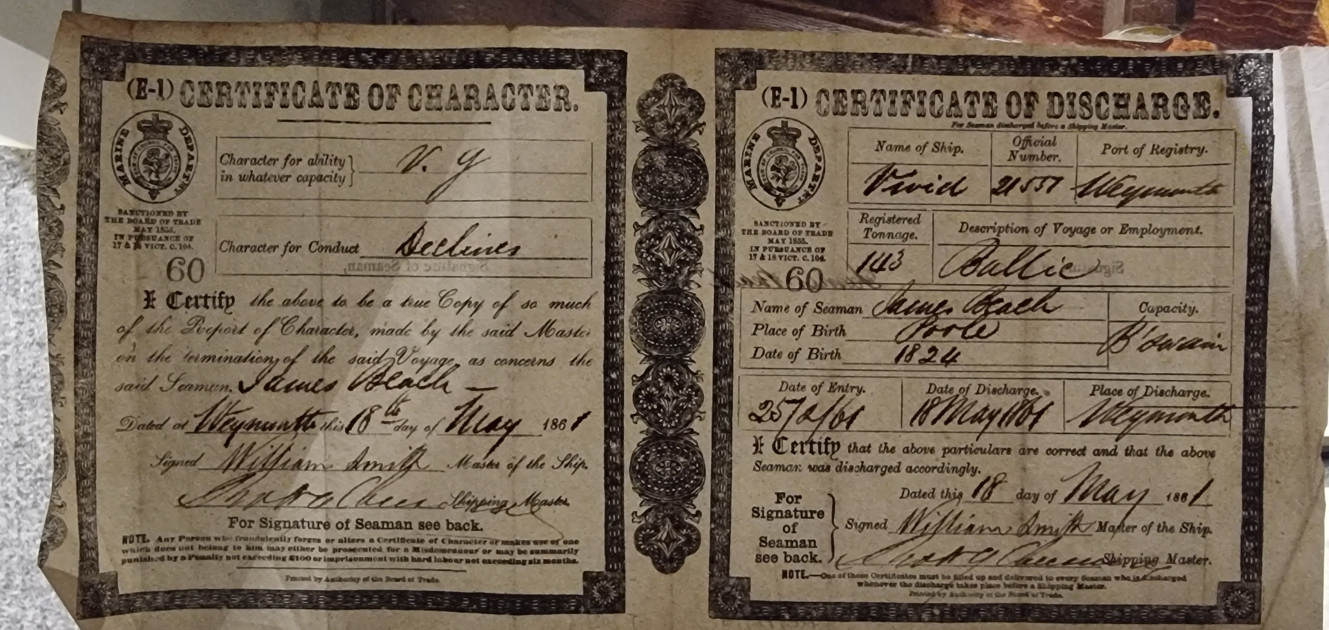 (E-1) CERTIFICATE OF CHARACTER.
MARINE DEPARTMENT
SANCTIONED BY
THE BOARD OF TRADE
MAY 1855.
IN PURSUANCE OF
17 & 18 VICT. C. 104.
60
Character for ability
in whatever capacity} V. G
Character for Conduct Declines
Signature of Seaman.
I Certify the above to be a true Copy of so much
of the Report of Character, made by the said Master
on the termination of the said Voyage, as concerns the
said Seaman. James Beach
Dated at Weymouth this 18th day of May 1861
Signed William Smith Master of the Ship.
Shipping Master
For Signature of Seaman see back.
NOTE. Any Person who fraudulently forges or alters a Certificate of Character or makes use of one
which does not belong to him may either be prosecuted for a Misdemeanour or may be summarily
punished by a Penalty not exceeding £100 or imprisonment with hard labour not exceeding six months.
Printed by Authority of the Board of Trade.
(E-1) CERTIFICATE OF DISCHARGE.
For Seaman discharged before a Shipping Master.
MARINE DEPARTMT
SANCTIONED BY
THE BOARD OF TRADE
MAY 1855.
IN PURSUANCE OF
17 & 18 VICT. C. 104.
60
Name of Ship. Official Number. Port of Registry.
Vivid 21557 Weymouth
Registered Tonnage. Description of Voyage or Employment.
143 Baltic
Signature
Name of Seaman James Beach Capacity.
Place of Birth Poole B'swain
Date of Birth 1824
Date of Entry. Date of Discharge. Place of Discharge.
25/2/61 18 May 1861 Weymouth
I Certify that the above particulars are correct and that the above
Seaman was discharged accordingly.
Dated this 18 day of May 1861
For Signature of Seaman see back.
Signed William Smith Master of the Ship.
Shipping Master.
NOTE.—One of these Certificates must be filled up and delivered to every Seaman who is discharged
whenever the discharge takes place before a Shipping Master.
Printed by Authority of the Board of Trade.